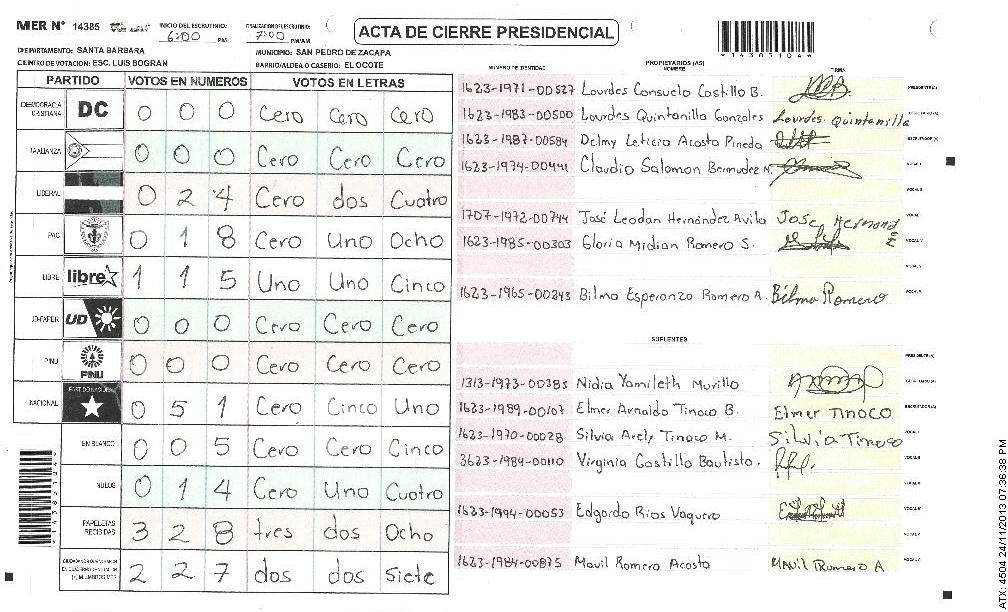 MER N° 14385
INICIO DEL ESCRUTINIO: 6:00 PM
FINALIZACION DEL ESCRUTINIO: 7:00 PM/AM
ACTA DE CIERRE PRESIDENCIAL
DEPARTAMENTO: SANTA BARBARA
MUNICIPIO: SAN PEDRO DE ZACAPA
CENTRO DE VOTACION: ESC. LUIS BOGRAN
BARRIO/ALDEA O CASERIO: EL OCOTE
PARTIDO VOTOS EN NUMEROS VOTOS EN LETRAS
DEMOCRACIA CRISTIANA DC 0 0 0 Cero Cero Cero
ALIANZA 0 0 0 Cero Cero Cero
LIBERAL 0 2 4 Cero dos Cuatro
PAC 0 1 8 Cero Uno Ocho
LIBRE libre 1 1 5 Uno Uno Cinco
UD-FAPER UD 0 0 0 Cero Cero Cero
PINU PINU 0 0 0 Cero Cero Cero
NACIONAL PARTIDO NACIONAL 0 5 1 Cero Cinco Uno
EN BLANCO 0 0 5 Cero Cero Cinco
NULOS 0 1 4 Cero Uno Cuatro
PAPELETAS RECIBIDAS 3 2 8 tres dos Ocho
2 2 7 dos dos Siete
NUMERO DE IDENTIDAD PROPIETARIOS (AS) NOMBRE FIRMA
1623-1971-00527 Lourdes Consuelo Castillo B. PRESIDENTE(A)
1623-1983-00500 Lourdes Quintanilla Gonzales Lourdes Quintanilla SECRETARIO(A)
1623-1987-00584 Delmy Leticia Acosta Pineda ESCRUTADOR(A)
1623-1974-00441 Claudio Salomon Bermudez M. VOCAL I
VOCAL II
1707-1972-00744 José Leodan Hernández Avila Jose Hernand
1623-1985-00303 Gloria Midian Romero S.
1623-1965-00243 Bilma Esperanza Romero A. Bilma Romero
SUPLENTES
PRESIDENTE(A)
1313-1973-00385 Nidia Yamileth Murillo SECRETARIO(A)
1623-1989-00107 Elmer Arnaldo Tinoco B. Elmer Tinoco ESCRUTADOR(A)
1623-1970-00028 Silvia Arely Tinoco M. Silvia Tinoco VOCAL I
3623-1984-00110 Virginia Castillo Bautista. VOCAL II
1623-1994-00053 Edgardo Rios Vaquero
1623-1984-00875 Mavil Romero Acosta Mavil Romero A
ATX: 4504 24/11/2013 07:36:38 PM